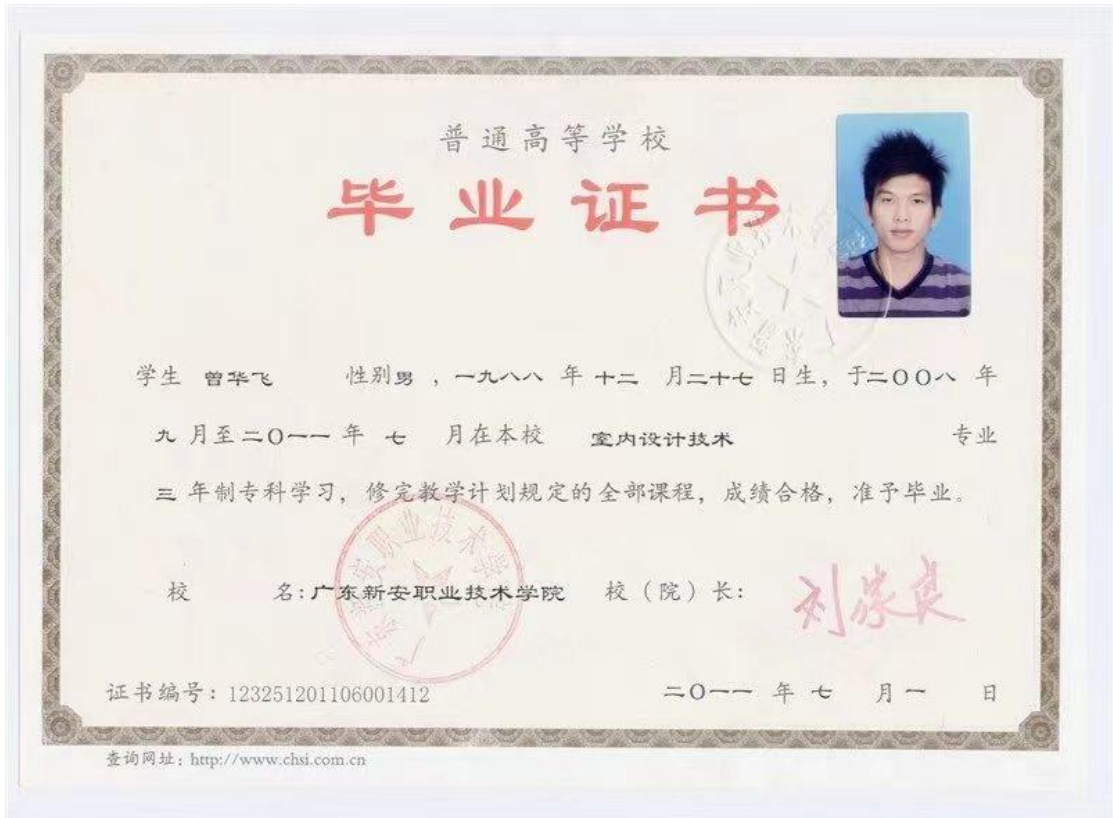 普通高等学校
毕业证书
学生 曾华飞 性别男，一九八八 年 十二 月二十七 日生，于二〇〇八 年
九 月至二〇一一 年 七 月在本校 室内设计技术 专业
三 年制专科学习，修完教学计划规定的全部课程，成绩合格，准予毕业。
广东新安职业技术学院
校 名:广东新安职业技术学院 校（院）长：
证书编号：123251201106001412 二〇一一 年 七 月 一 日
查询网址：http://www.chsi.com.cn